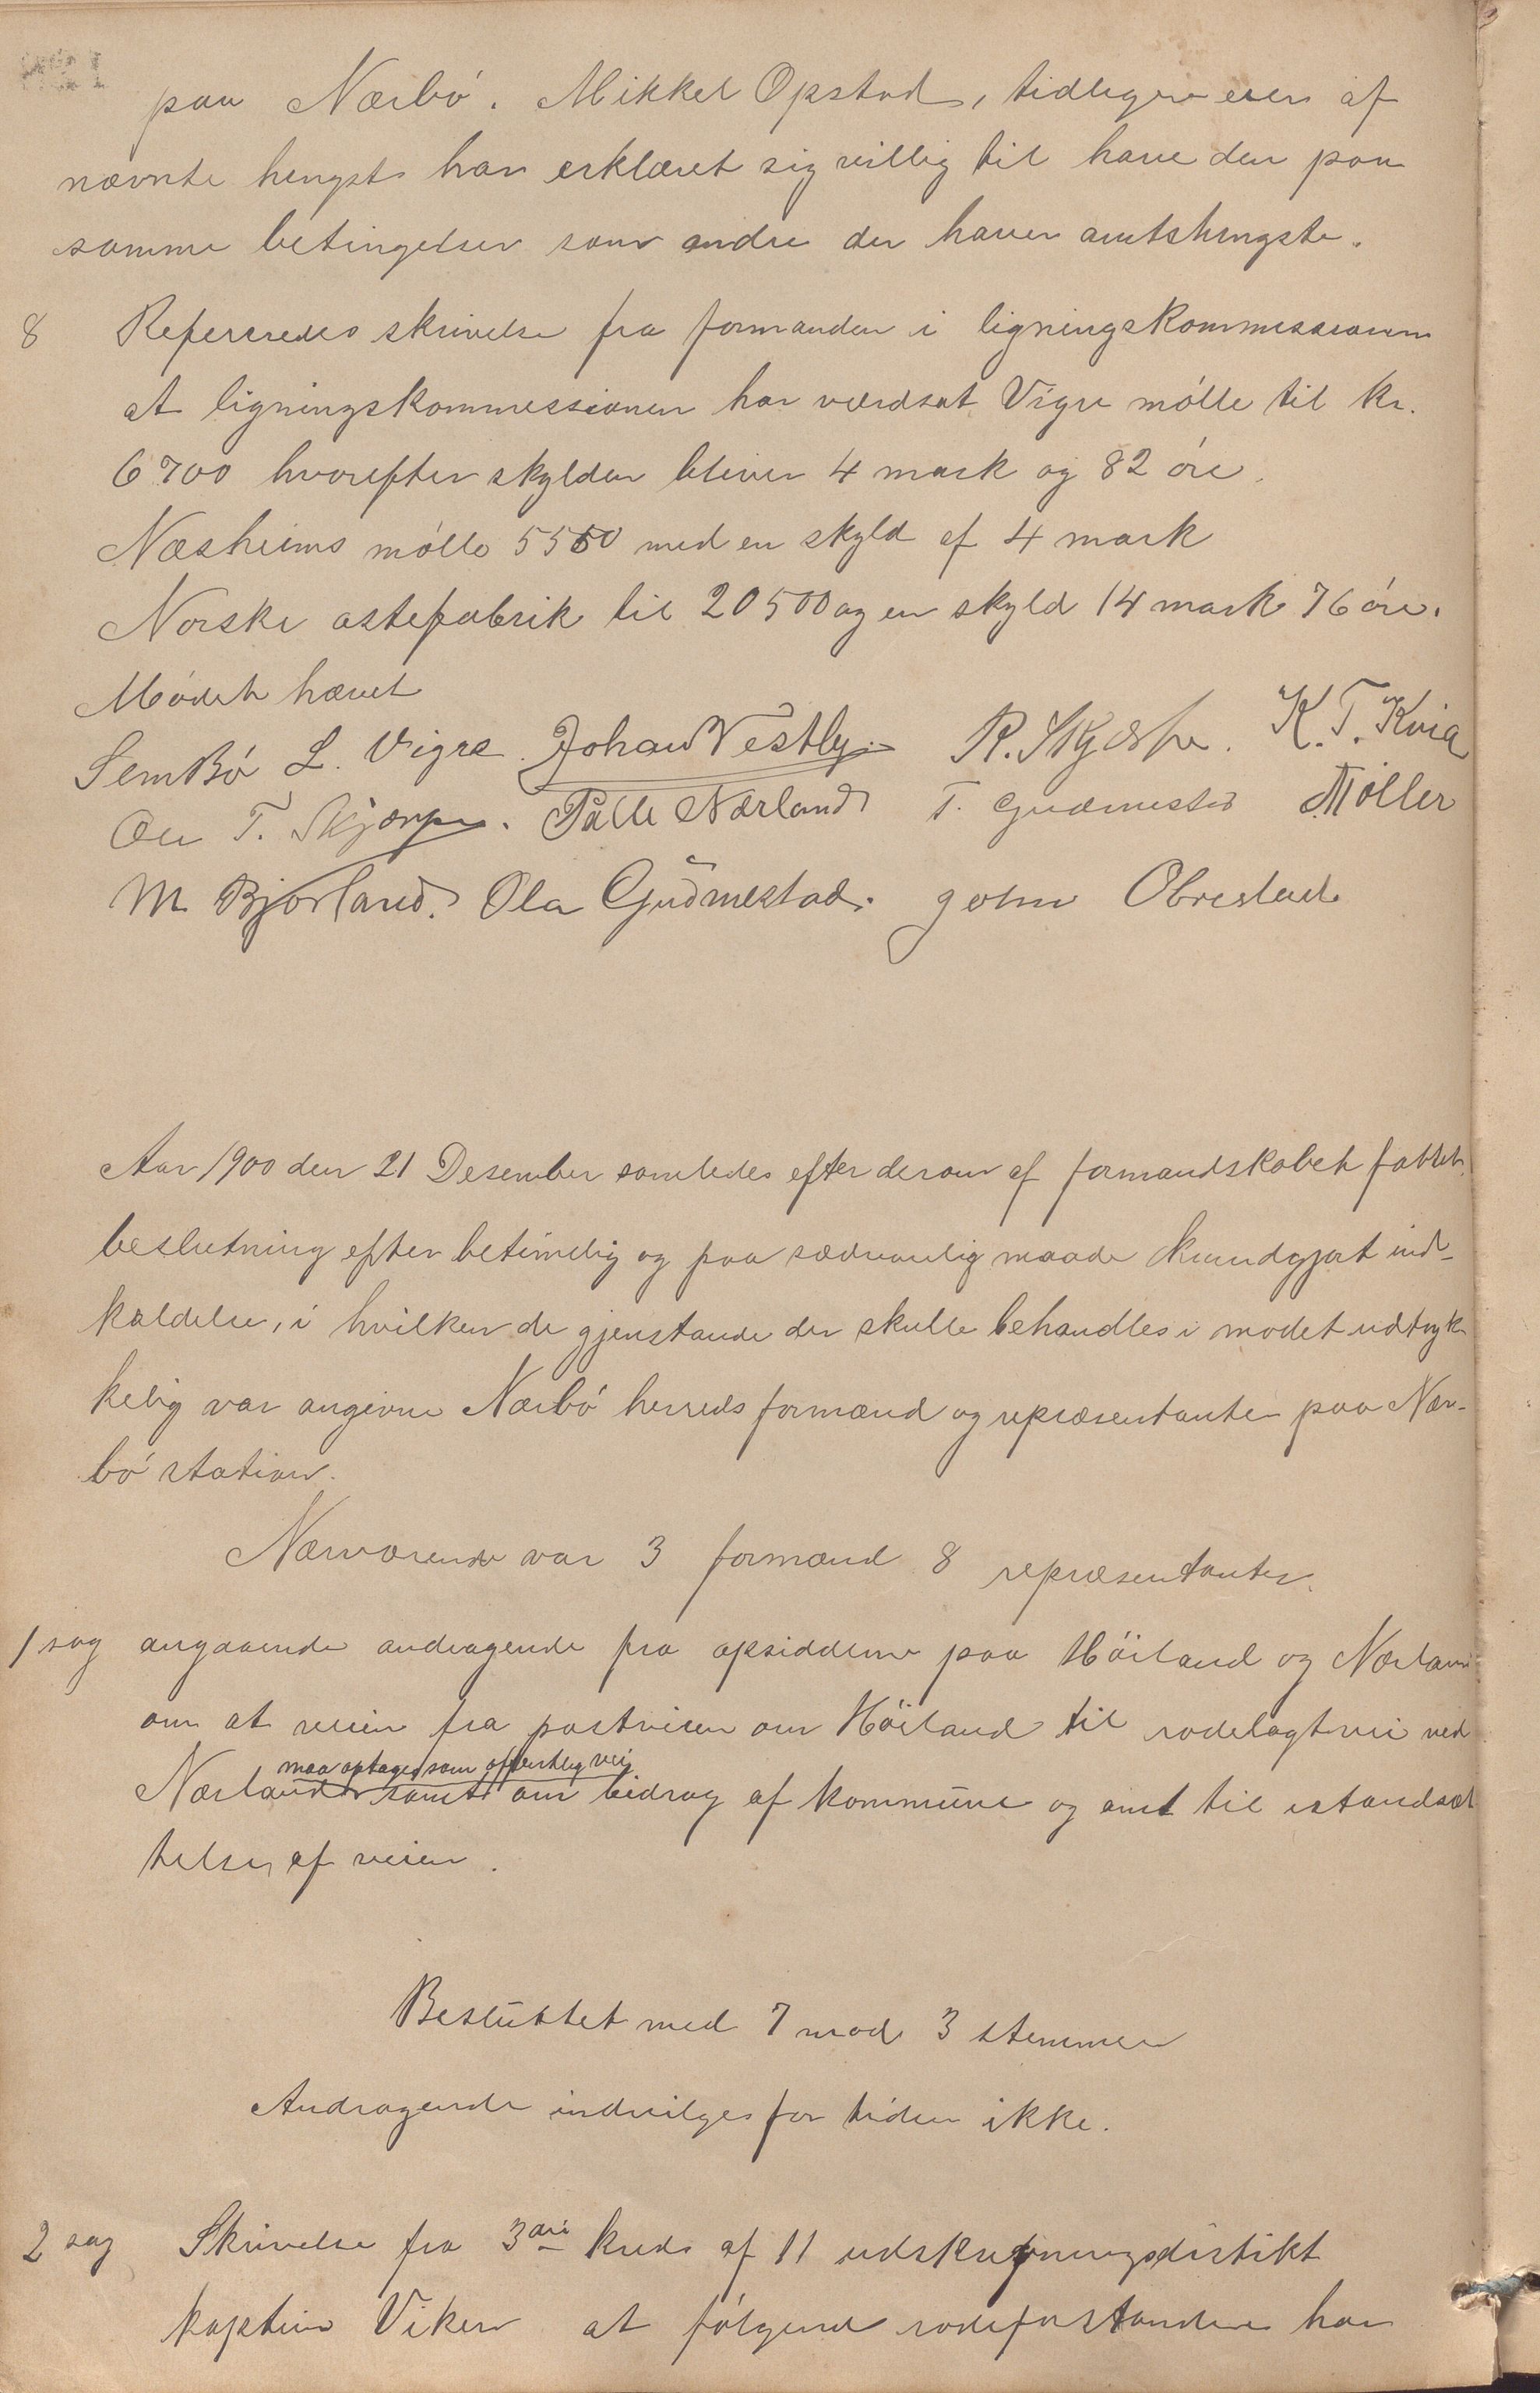 paa Nærbö. Mikkel Opstad, tidligere eier af
nævnte hengst har erklæret sig villig til have den paa
samme betingelser som andre der haver amtshingste.
8 Refereredes skrivelse fra formanden i ligningskommissionen
at ligningskommessionen har værdsat Vigre mölle til kr.
6700 hvorefter skylden bliver 4 mark og 82 öre.
Næsheims mölle 5550 med en skyld af 4 mark
Norske ostefabrik til 20500 og en skyld 14 mark 76 öre.
Mödet hævet
Sem Bö L. Vigre. Johan Vestly. R. Skjærpe. K. T. Kvia
Ole T. Skjærpe. Palle Nærland T. Gudmestad Möller
M Bjorland. Ola Gudmestad. John Obrestad
Aar 1900 den 21 Desember samledes efter derom af formandskabet fattet
beslutning efter betimelig og paa sædvanlig maade kundgjort ind-
kaldelse, i hvilken de gjenstande der skulle behandles i modet udtryk-
kelig var angivne Nærbö herreds formænd og repræsentanter paa Nær-
bö station.
Nærværende var 3 formænd 8 repræsentanter.
1 sag angaaende andragende fra opsidderne paa Höiland og Nærland
om at veien fra postveien om Höiland til rodelagt vei ved
maa optages som offentlig vei
Nærland samt om bidrag af kommune og amt til istandsæt
telse af veien.
Besluttet med 7 mod 3 stemmer
Andragende indvilges for tiden ikke.
2 sag Skrivelse fra 3die kreds af 11 udskrivningsdistikt
kaptein Viken at fölgende rodeforstandere har